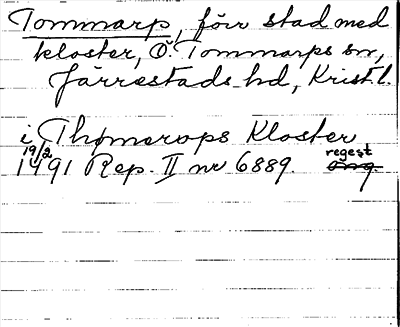 Tommarp, förr stad med
kloster, Ö. Tommarps sn,
Järrestads hd, Krist.l.
i Thømerops Kloster
19/2
1491 Rep. II nr 6889. regest
orig.